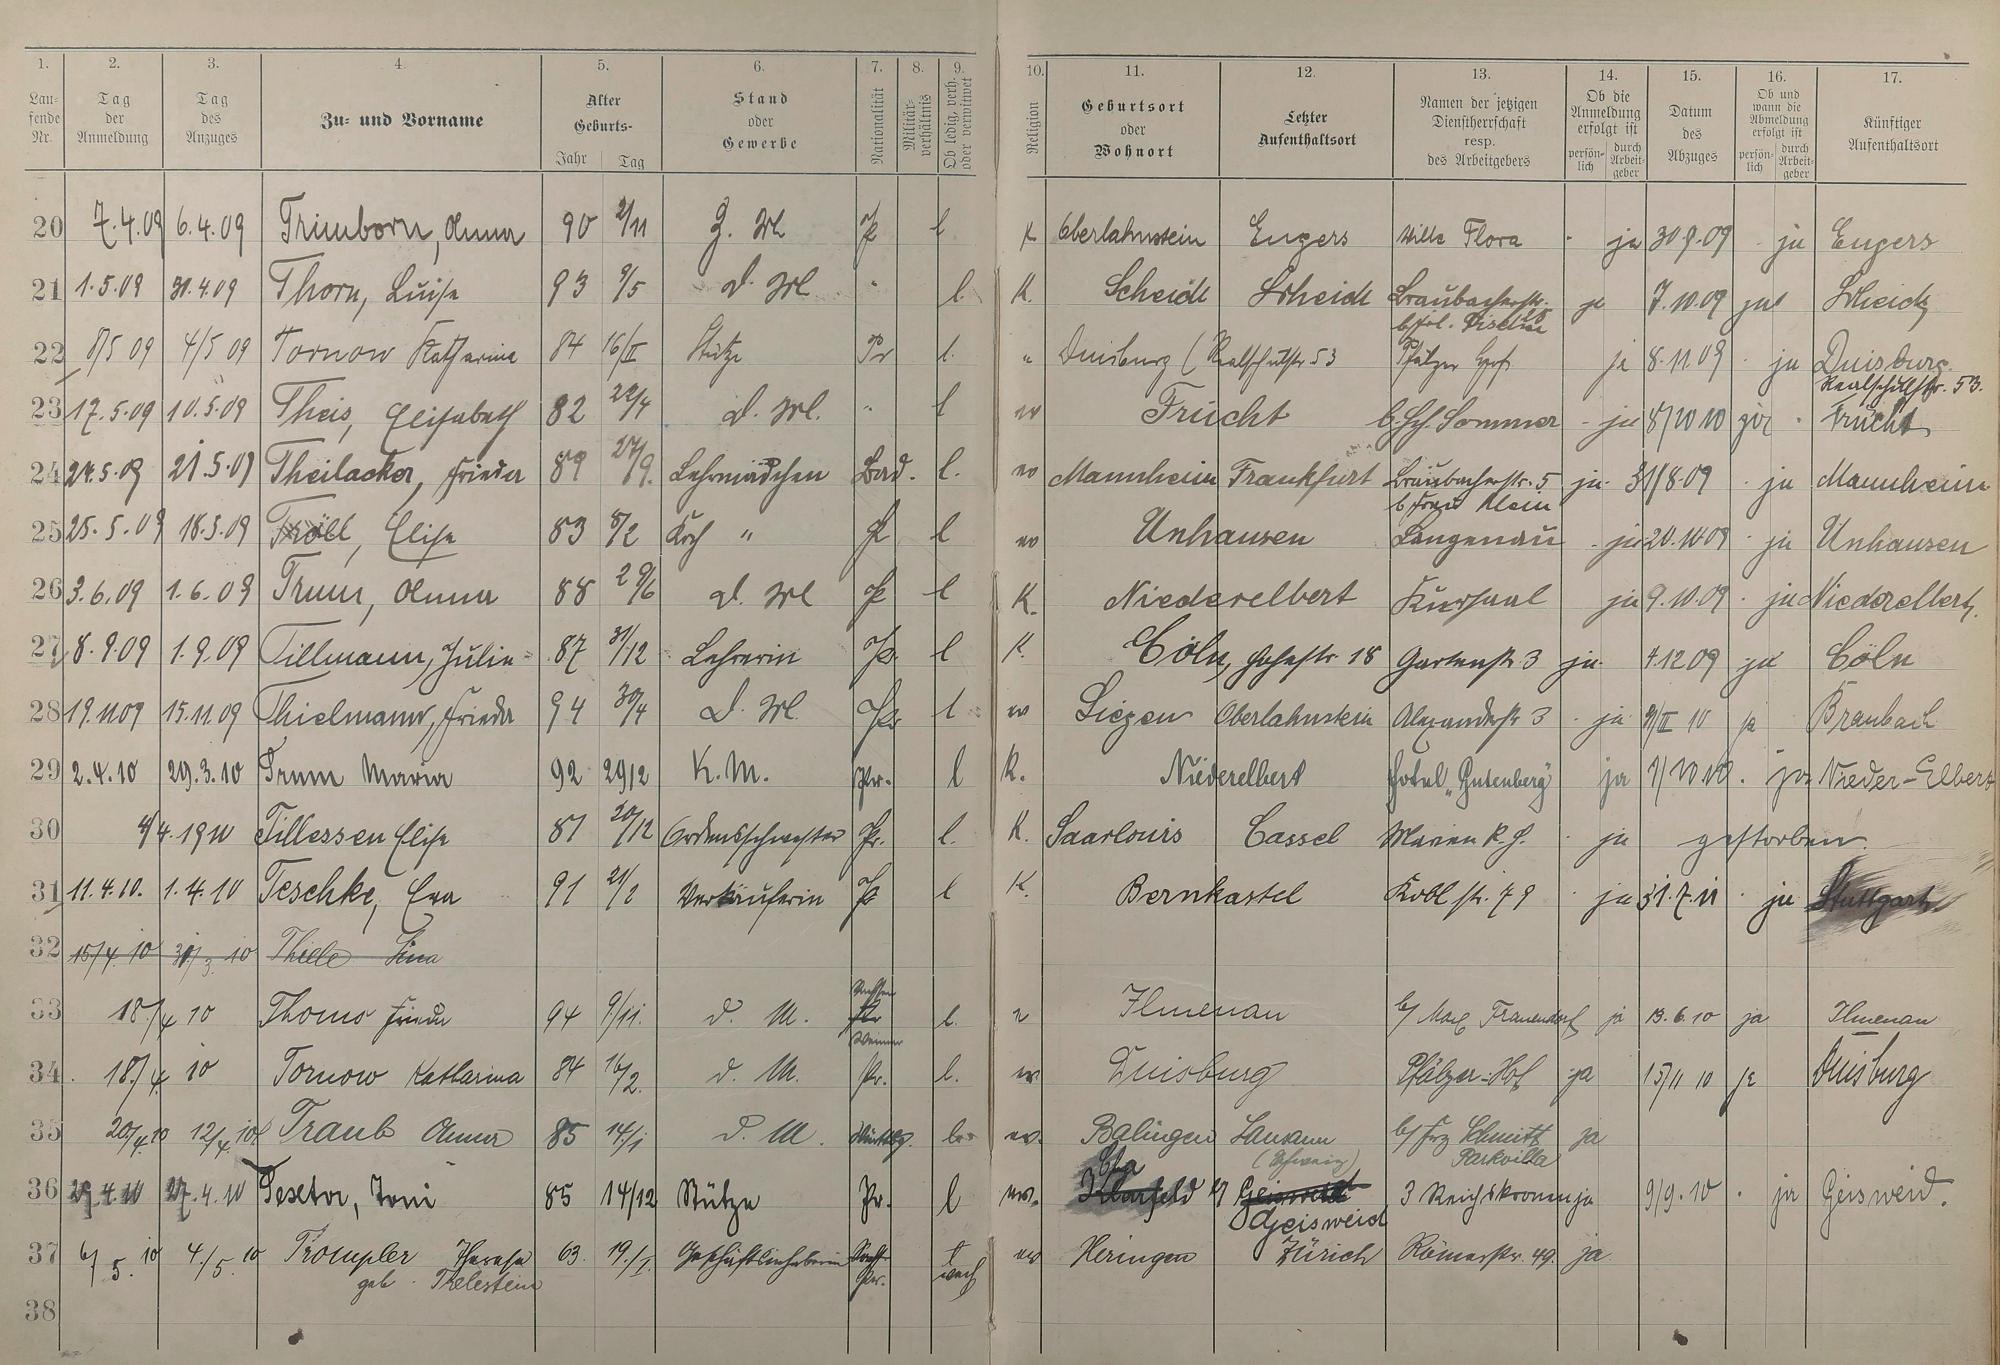 1. 2. 3. 4. 5. 6. 7. 8. 9. 10. 11. 12. 13. 14. 15. 16. 17.
Laufende Nr. Tag der Anmeldung Tag des Anzuges Zu- und Vorname Alter Geburts- Jahr Tag Stand oder Gewerbe Nationalität Militärverhältnis Ob ledig, verh. oder verwitwet Religion Geburtsort oder Wohnort Letzter Aufenthaltsort Namen der jetzigen Dienstherrschaft resp. des Arbeitgebers Ob die Anmeldung erfolgt ist persönlich durch Arbeitgeber Datum des Abzuges Ob und wann die Abmeldung erfolgt ist persönlich durch Arbeitgeber Künftiger Aufenthaltsort
20 7.4.09 6.4.09 Trimborn, Anna 90 2/11 l K Oberlahnstein Engers Villa Flora ja 30.9.09 ja Engers
21 1.5.09 30.4.09 Thorn, Luise 93 9/5 D. Ml " l. K. Scheidt Scheidt Braubacherstr. 28 ja 7.10.09 ja Scheidt
b/ Frl. Discher
22 8/5 09 4/5 09 Tornow Katharina 84 16/II Stütze Pr l. " Duisburg (Realschulstr. 53 Pfälzer Hof ja 8.11.09 ja Duisburg
Realschulstr. 53.
23 17.5.09 10.5.09 Theis, Elisabeth 82 22/4 D. Ml. " l ev Frücht Sommer ja 8/10 10 Frücht
24 24.5.09 21.5.09 Theilacker, Frieda 89 27/9. Lehrmädchen Bad. l. ev Mannheim Frankfurt Braubacherstr. 5 ja 31/8.09 ja Mannheim
b/ Frau Klein
25 25.5.09 18.5.09 Tröll, Elise 83 8/2 Koch " P l ev Unhausen Langenau ja 20.10 09 ja Unhausen
26 3.6.09 1.6.09 Trum, Anna 88 29/6 D. Ml P l K. Niederelbert Kursaal ja 9.10.09 ja Niederelbert.
27 8.9.09 1.9.09 Tillmann, Julie 87 31/12 Lehrerin Pr. l K. Cöln, Hohestr 18 Gartenstr. 3 ja 4.12 09 ja Cöln
28 19.11 09 15.11.09 Thielmann, Frieda 94 30/4 D. Ml Pr l ev Siegen Oberlahnstein Alexanderstr. 3 ja 9/II 10 ja Braubach
29 2.4.10 29.3.10 Trum Maria 92 29/2 K. M. Pr. l K. Niederelbert Hotel „Gutenberg" ja 1/10 10. ja Nieder-Elbert
30 4/4. 1910 Tillessen Elise 81 20/12 Ordensschwester Pr. l. K. Saarlouis Cassel Marien K.H. ja gestorben.
31 11.4.10. 1.4.10 Teschke, Eva 91 21/2 Verkäuferin P l K. Bernkastel Kobl. str. 79 ja 31.7.11 ja Stuttgart
32 15/4. 10 31/3. 10 Thiele Lina
33 18./4 10 Thoms Frieda 94 9/11. d. M. Pr l. Ilmenau b/ Max Frauendorf ja 13.6.10 ja Ilmenau
34 18./4. 10 Tornow Katharina 84 16/2. d. M. Pr. l. ev Duisburg Pfälzer-Hof ja 15/11 10 ja Duisburg
35 20./4.10 12/4. 10 Traub Anna 85 14/1 d. M. Württbg. ev. Balingen Lausann b/ Frz Schmitt ja
(Schweiz) Parkvilla
36 29.4.10 27.4.10 Textor, Toni 85 14/12 Stütze Pr. l ev. Elberfeld Geisweid 3 Reichskronen ja 9/9.10 ja Geisweid.
Geisweid
37 6/5. 10 4./5. 10 Trompler Therese 63 19./1. Geschäftsinhaberin Pr. ev Heringen Zürich Römerstr. 49. ja
geb. Thelestein
38